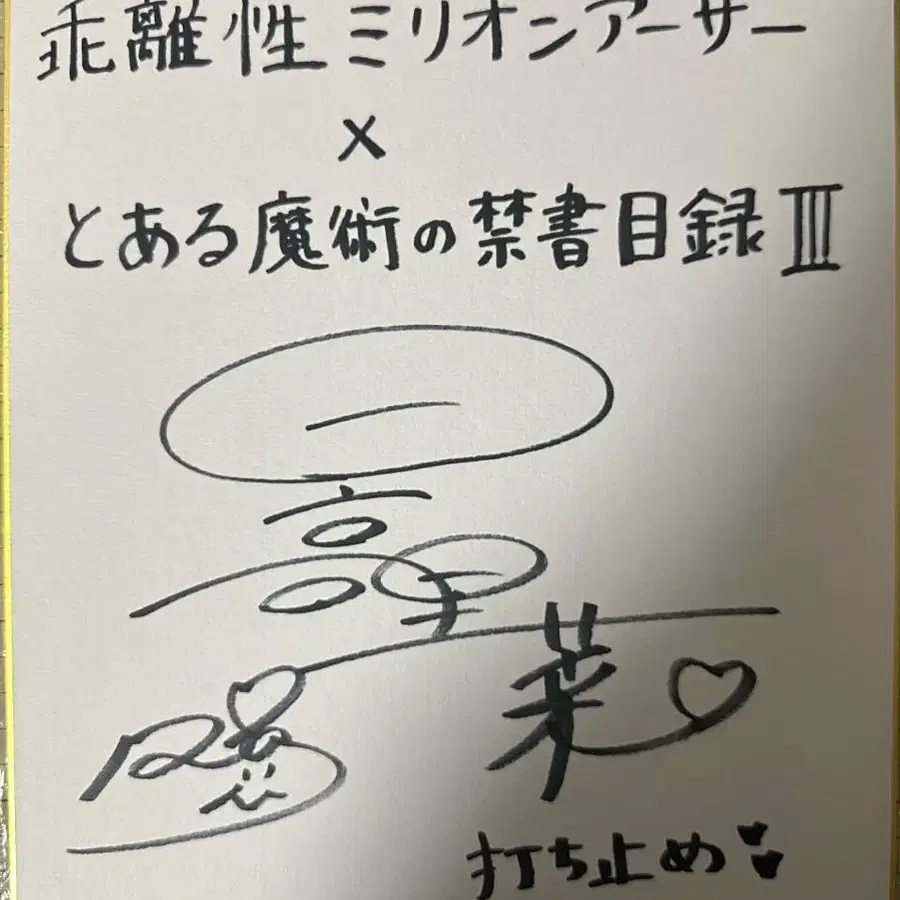 乖離性ミリオンアーサー
×
とある魔術の禁書目録Ⅲ
打ち止め